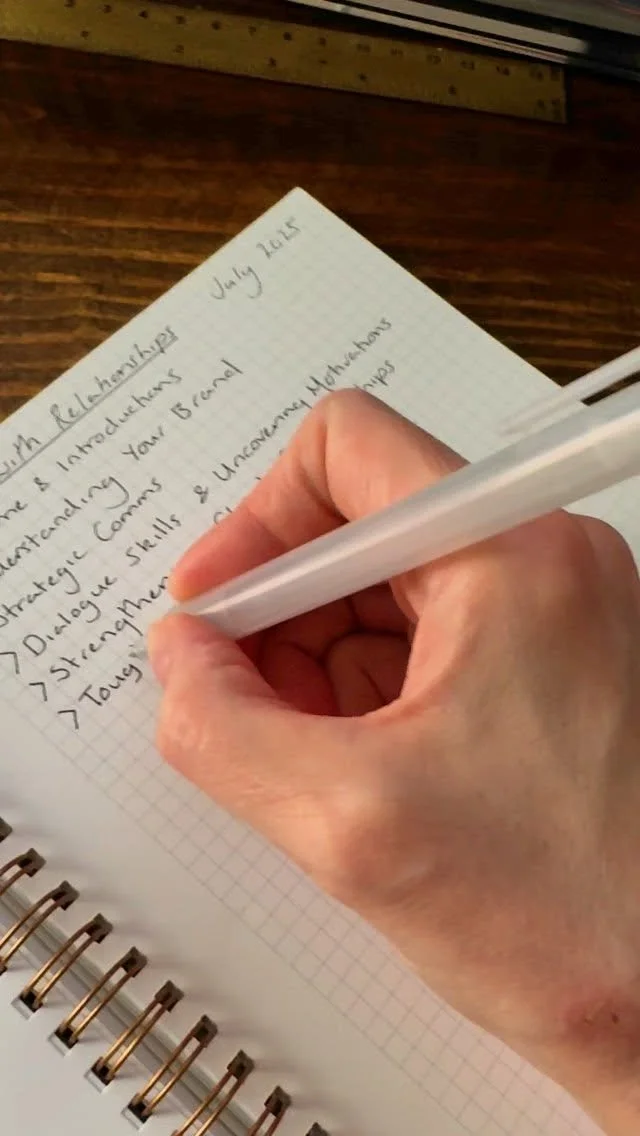 July 2025
with Relationships
& Introductions
Understanding Your Brand
Strategic Comms
> Dialogue Skills & Uncovering Motivations
> Strengthen
> Toug